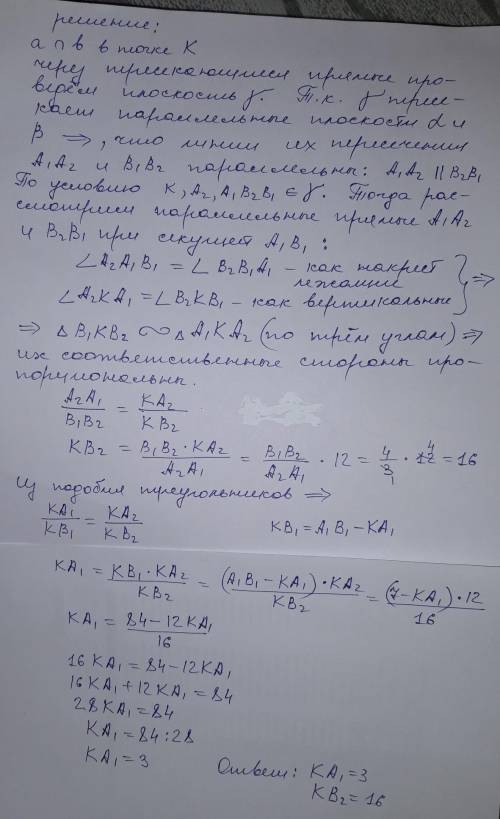 решение:
a ∩ b в точке K
через пересекающиеся прямые про-
ведём плоскость γ. Т.к. γ пересе-
кает параллельные плоскости α и
β ⇒, что линии их пересечения
A₁A₂ и B₁B₂ параллельны: A₁A₂ || B₂B₁
По условию K, A₂, A₁ B₂ B₁ ∈ γ. Тогда рас-
смотрим параллельные прямые A₁A₂
и B₂B₁ при секущей A₁B₁:
∠A₂A₁B₁ = ∠B₂B₁A₁ – как накрест
лежащие
∠A₂KA₁ = ∠B₂KB₁ – как вертикальные } ⇒
⇒ △B₁KB₂ ∾ △A₁KA₂ (по трём углам) ⇒
их соответственные стороны про-
порциональны.
A₂A₁/B₁B₂ = KA₂/KB₂
KB₂ = B₁B₂·KA₂/A₂A₁ = B₁B₂/A₂A₁ · 12 = 4/3 · 12 = 16
Из подобия треугольников ⇒
KA₁/KB₁ = KA₂/KB₂ KB₁ = A₁B₁ – KA₁
KA₁ = KB₁·KA₂/KB₂ = (A₁B₁ – KA₁)·KA₂/KB₂ = (7–KA₁)·12/16
KA₁ = 84–12KA₁/16
16KA₁ = 84–12KA₁
16KA₁ + 12KA₁ = 84
28KA₁ = 84
KA₁ = 84 : 28
KA₁ = 3 Ответ: KA₁ = 3
KB₂ = 16